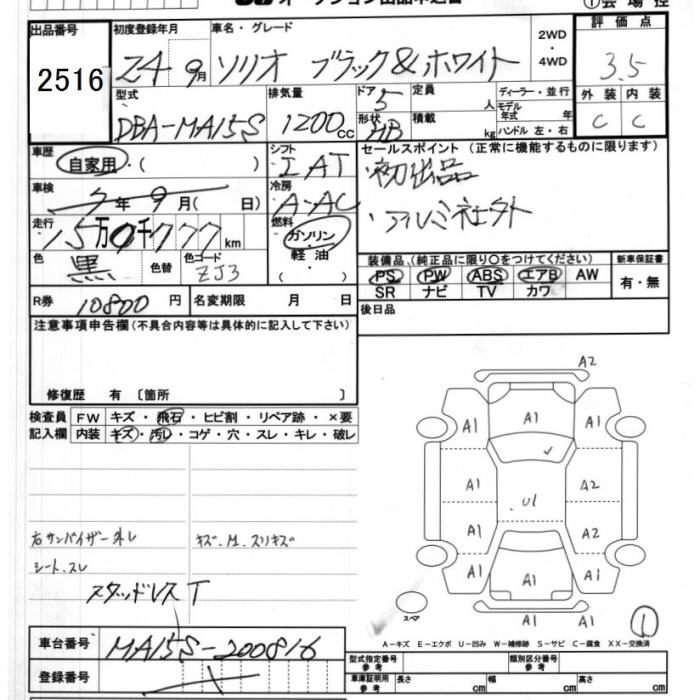 出品番号 初度登録年月 車名・グレード 2WD・4WD 評価点
2516 24 9月 ソリオ ブラック&ホワイト 3.5
型式 排気量 ドア 定員 人 ディーラー・並行 外装 内装
DBA-MA15S 1200cc 5 形状 HB 積載 kg モデル年式 年 ハンドル 左・右 C C
車歴 自家用・( ) シフト IAT セールスポイント (正常に機能するものに限ります)
車検 年 9月( 日) 冷房 A-AC 初出品
走行 万 千777km 燃料 ガソリン・軽油・( )
色 黒 色替 色コード ZJ3 装備品、(純正品に限り○をつけてください) 新車保証書
PS PW ABS エアB AW 有・無
SR ナビ TV カワ
R券 10800円 名変期限 月 日 後日品
注意事項申告欄(不具合内容等は具体的に記入して下さい)
修復歴 有 〔箇所 〕
検査員 FW キズ・飛石・ヒビ割・リペア跡・×要
記入欄 内装 キズ・汚レ・コゲ・穴・スレ・キレ・破レ
右サンバイザー外レ キズ.M.スリキズ
シート.スレ
スタッドレスT
A2
A1 A1 A1
A1 U1 A2
A1 A2
A1 A1 A1
A1 A1
スペア
①
A-キズ E-エクボ U-凹み W-補修跡 S-サビ C-腐食 XX-交換済
車台番号 MA15S-200816
登録番号
型式指定番号 参考 類別区分番号 参考
車庫証明用 参考 長さ cm 幅 cm 高さ cm